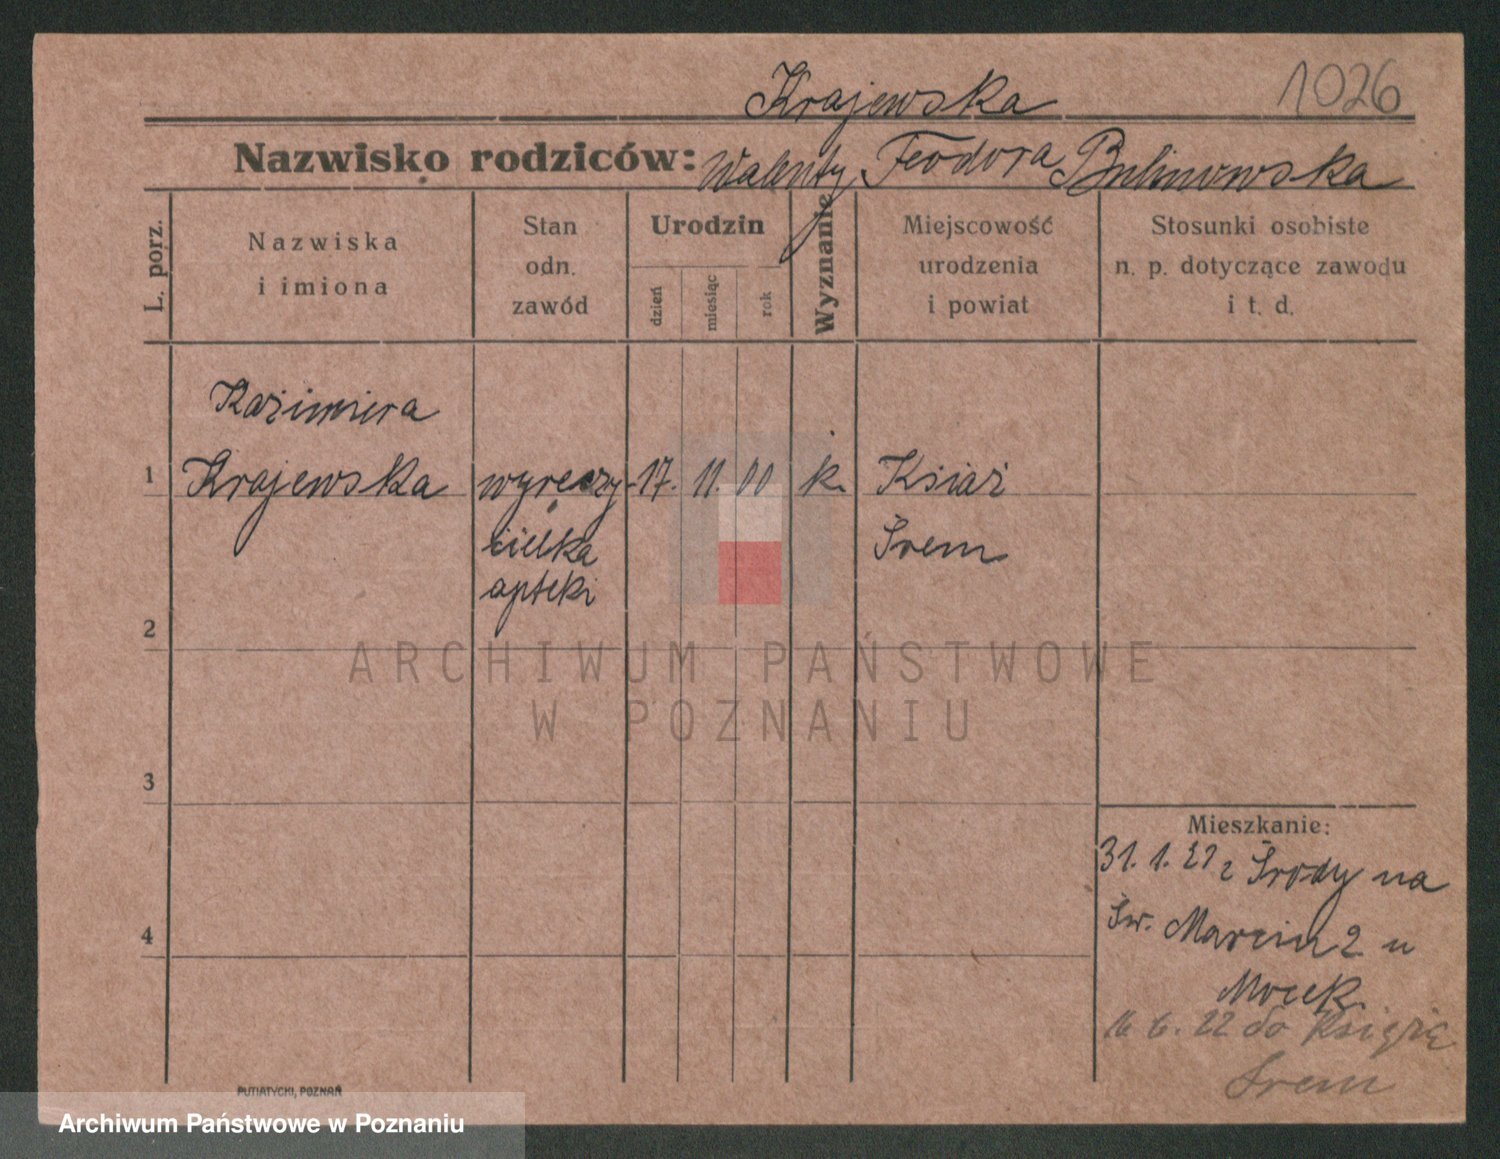 Krajewska
1026
Nazwisko rodziców: Walenty Feodora
L. porz.
Nazwiska
i imiona
Stan
odn.
zawód
Urodzin
dzień
miesiąc
rok
Wyznanie
Miejscowość
urodzenia
i powiat
Stosunki osobiste
n. p. dotyczące zawodu
i t. d.
Kazimiera
1 Krajewska wyręczy- 17. 11. 00 k. Książ
cielka Śrem
apteki
2
ARCHIWUM PAŃSTWOWE
W POZNANIU
3
4
Mieszkanie:
31. 1. z Środy na
Św. Marcin 2 u
Mocek
16 6. 22 do Książa
Śrem
PUTIATYCKI, POZNAŃ
Archiwum Państwowe w Poznaniu